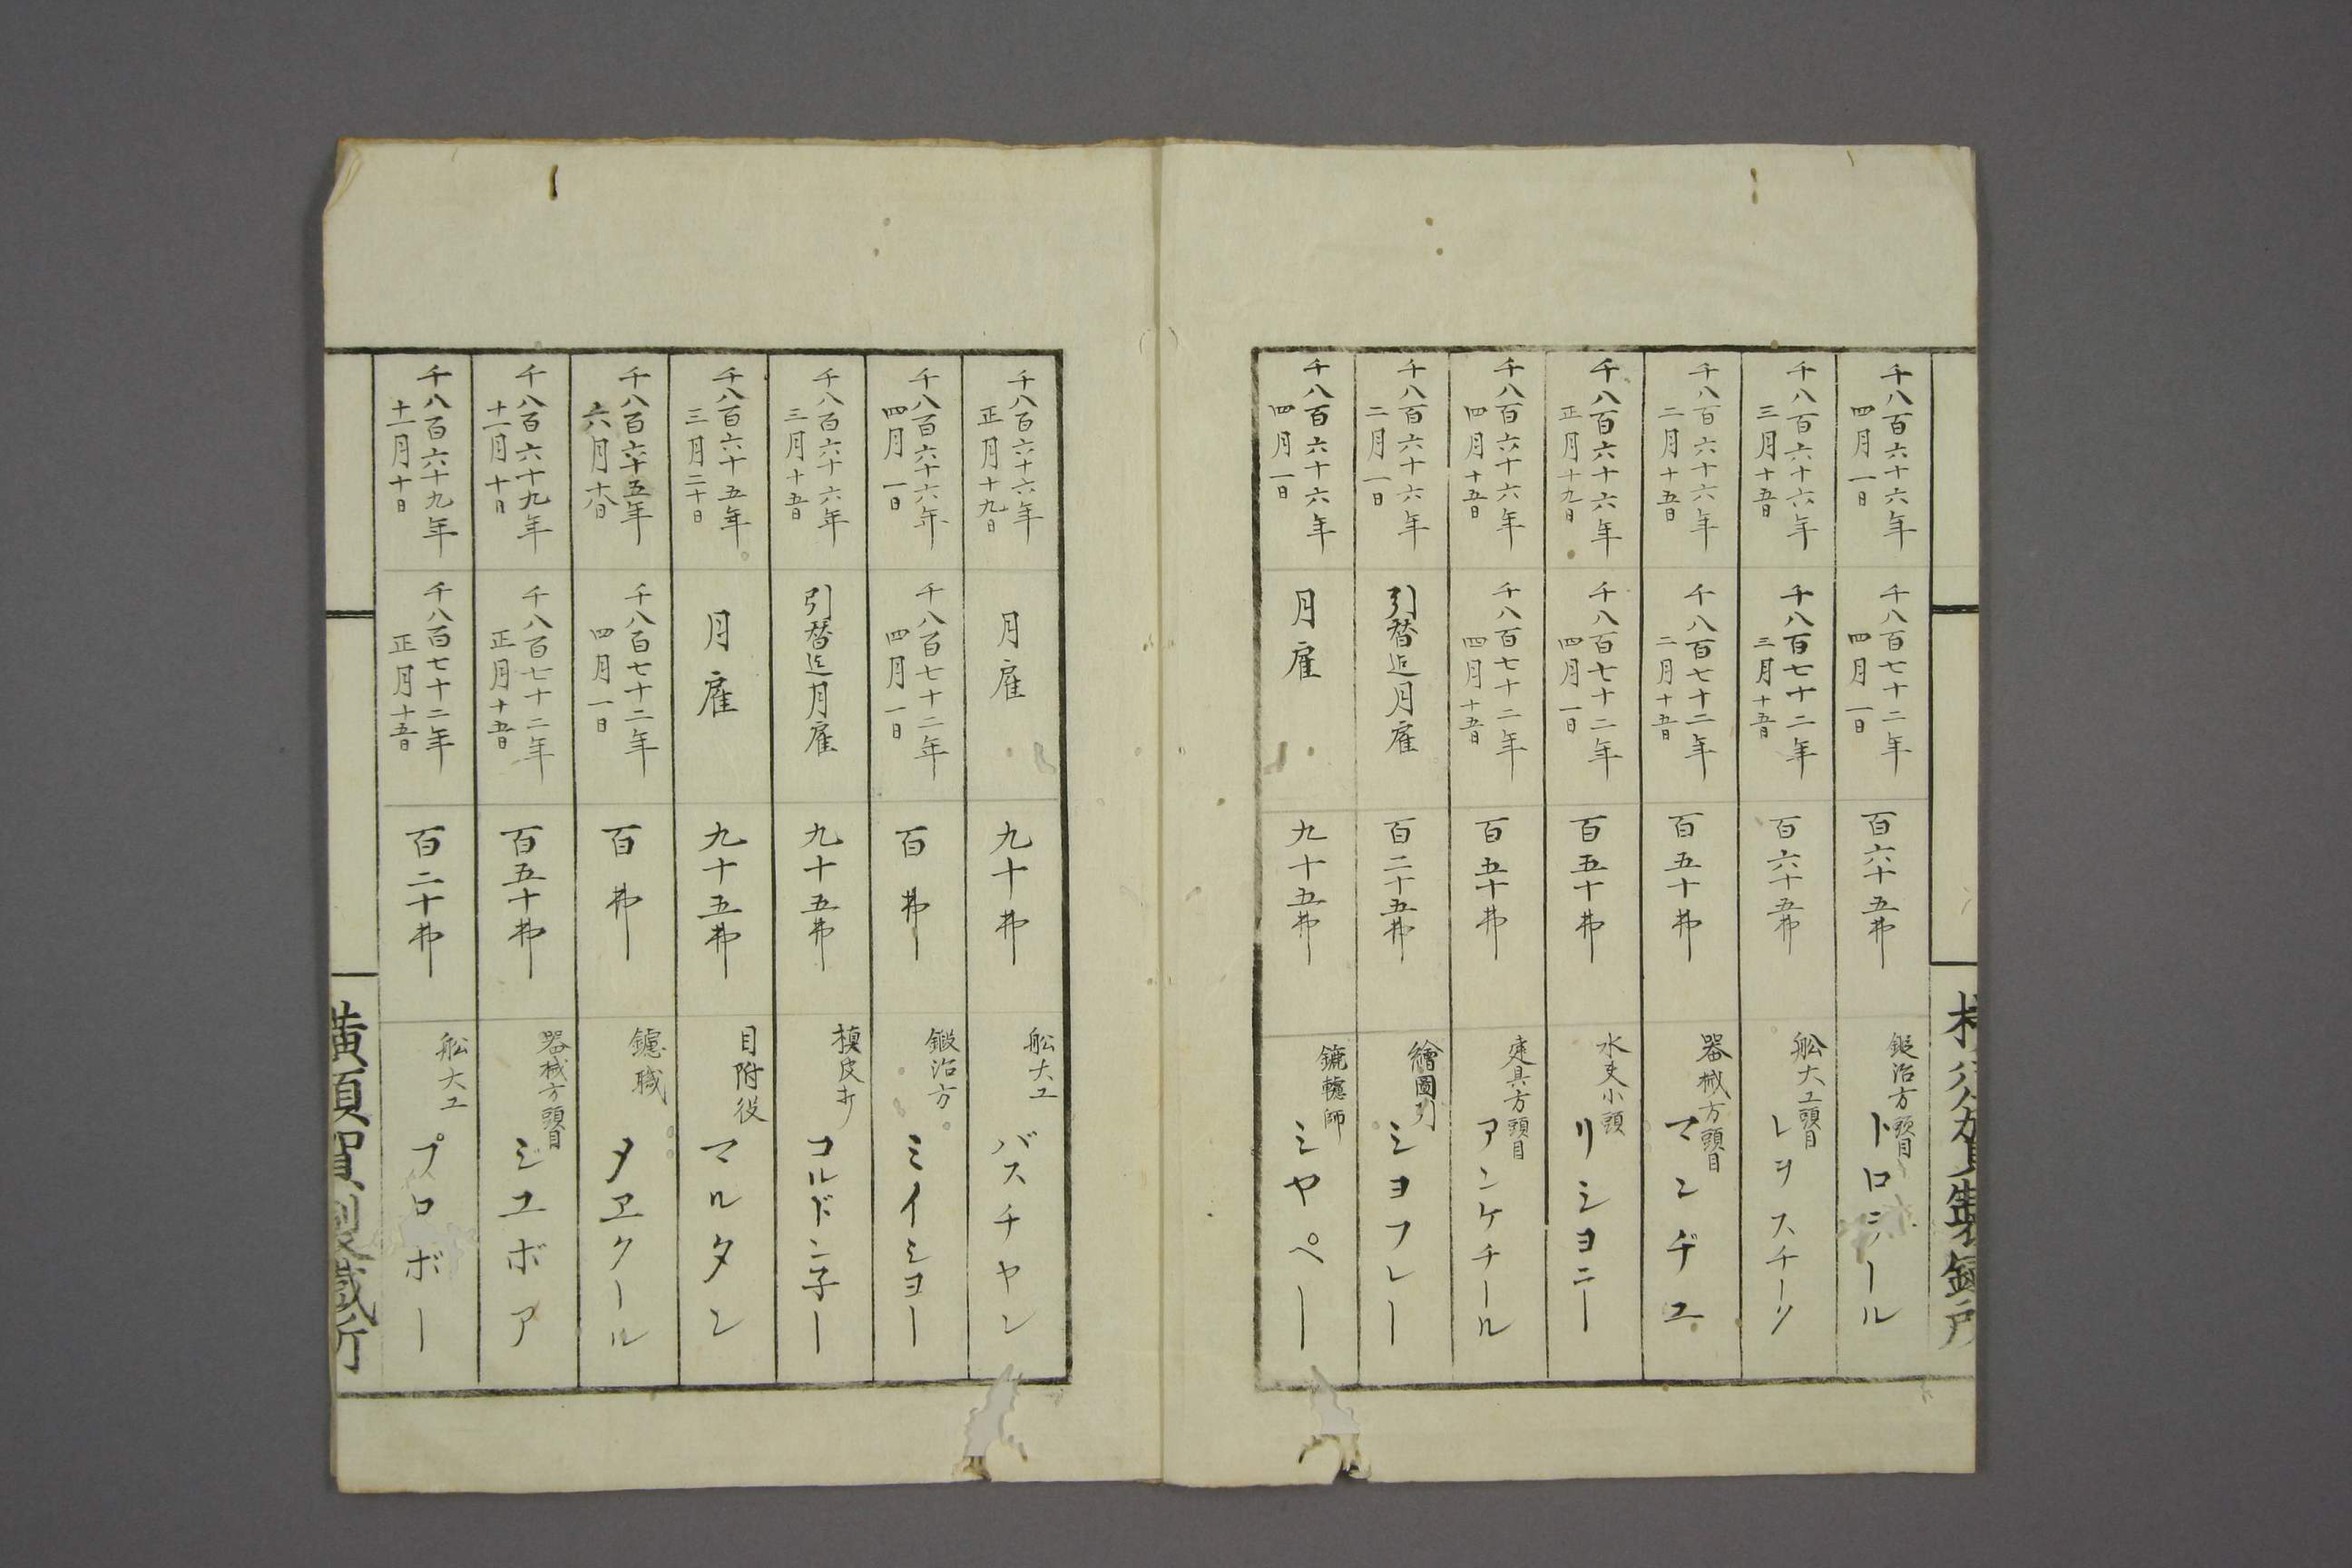 千八百六十六年
四月一日
千八百七十二年
四月一日
百六十五弗
鍛冶方頭目
トロニール
千八百六十六年
三月十五日
千八百七十二年
三月十五日
百六十五弗
舩大工頭目
レヲスチーツ
千八百六十六年
二月十五日
千八百七十二年
二月十五日
百五十弗
器械方頭目
マンヂユ
千八百六十六年
正月十九日
千八百七十二年
四月一日
百五十弗
水夫小頭
リシヨニー
千八百六十六年
四月十五日
千八百七十二年
四月十五日
百五十弗
建具方頭目
アンケチール
千八百六十六年
二月一日
引替迄月雇
百二十五弗
繪圖引
シヨフレー
千八百六十六年
四月一日
月雇
九十五弗
師
シヤペー
千八百六十六年
正月十九日
月雇
九十弗
舩大工
バスチヤン
千八百六十六年
四月一日
千八百七十二年
四月一日
百弗
鍛冶方
ミイシヨー
千八百六十六年
三月十五日
引替迄月雇
九十五弗
槙皮打
コルドン子ー
千八百六十五年
三月二十日
月雇
九十五弗
目附役
マルタン
千八百六十五年
六月十八日
千八百七十二年
四月一日
百弗
鑢職
タヱクール
千八百六十九年
十一月十日
千八百七十二年
正月十五日
百五十弗
器械方頭目
ジユボア
千八百六十九年
十一月十日
千八百七十二年
正月十五日
百二十弗
舩大工
プロボー
横須賀製鐵所